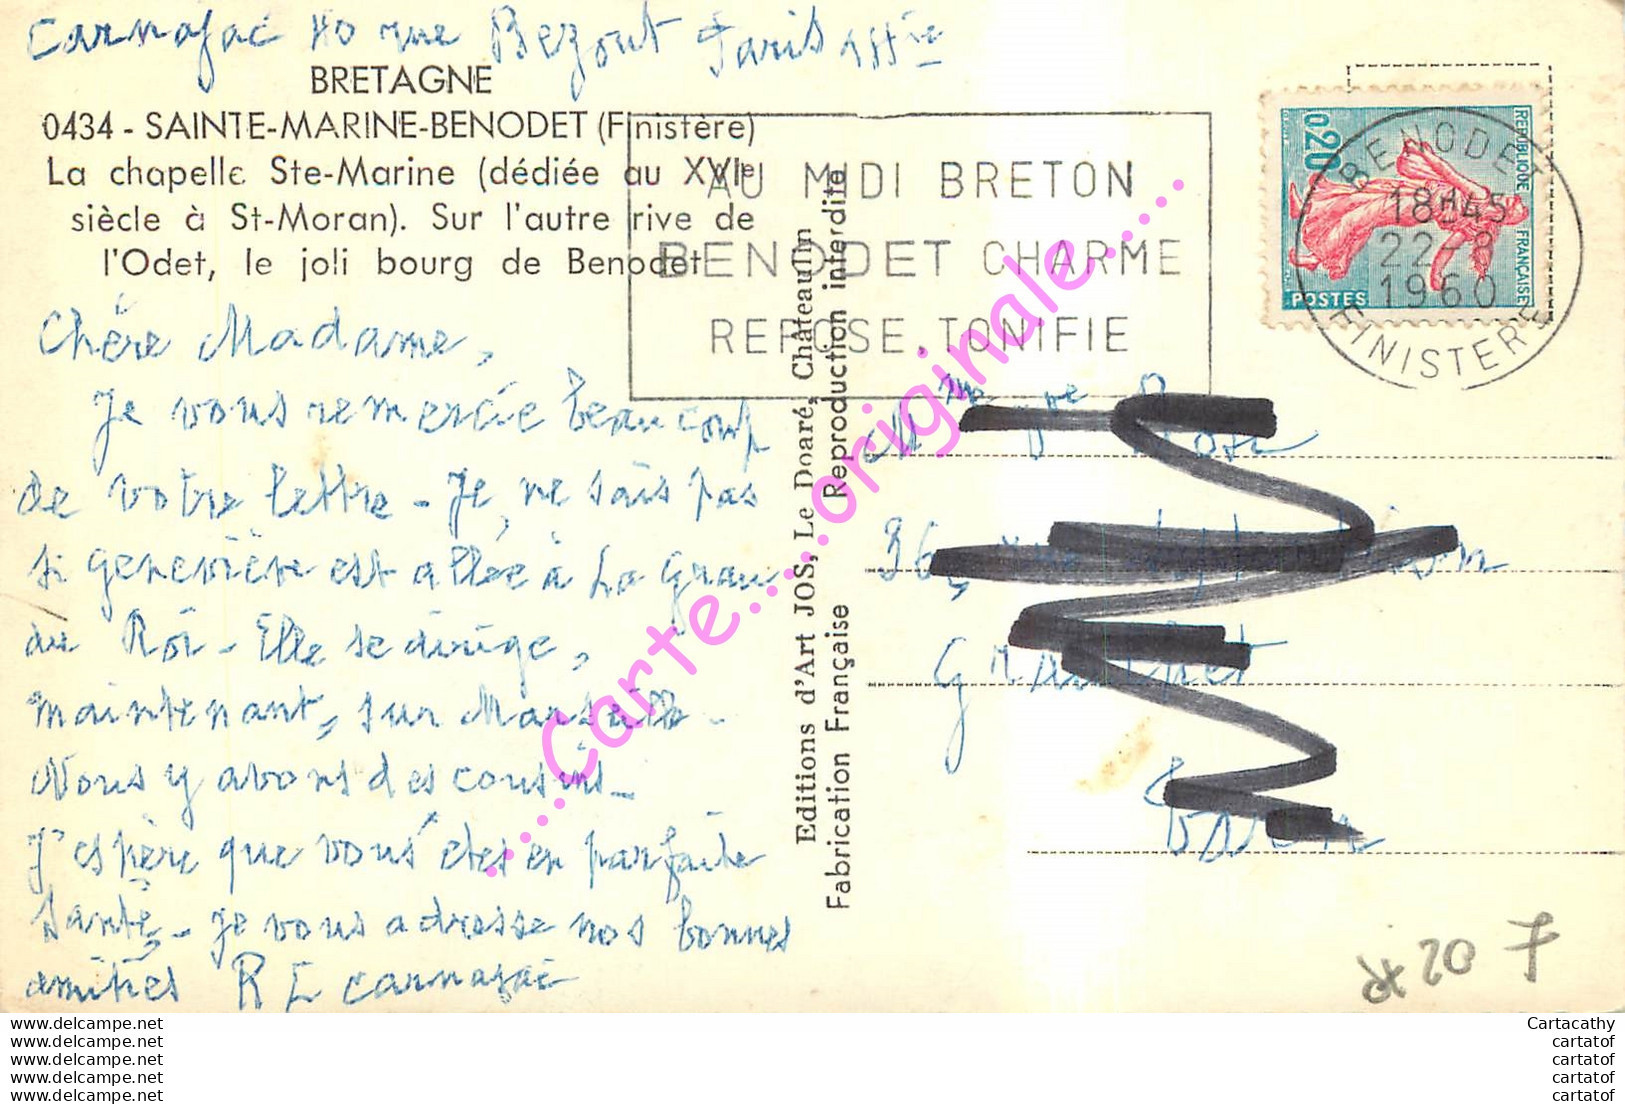 Carnajac 40 rue Bezout Paris
BRETAGNE
0434 - SAINTE-MARINE-BENODET (Finistère)
La chapelle Ste-Marine (dédiée au XVIe
siècle à St-Moran). Sur l'autre rive de
l'Odet, le joli bourg de Benodet
Chère Madame,
Je vous remercie beaucoup
de votre lettre - Je ne sais pas
si geneviève est allée à La Grau
du Roi - Elle se dirige,
maintenant, sur Marseille -
Nous y avons des cousins -
J'espère que vous êtes en parfaite
Santé - Je vous adresse nos bonnes
amitiés R E Carnajac
AU MIDI BRETON
BENODET CHARME
REPOSE, TONIFIE
REPUBLIQUE FRANÇAISE
0,20
POSTES
BENODET
18H45
22-8
1960
FINISTERE
Editions d'Art JOS, Le Doaré, Châteaulin
Fabrication Française Reproduction interdite
...Carte....originale.....
36, rue
20 F
www.delcampe.net
www.delcampe.net
www.delcampe.net
www.delcampe.net
www.delcampe.net
Cartacathy
cartatof
cartatof
cartatof
cartatof